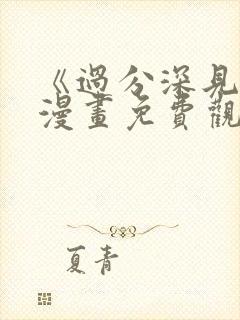 《過分深見
漫畫免費觀
夏青